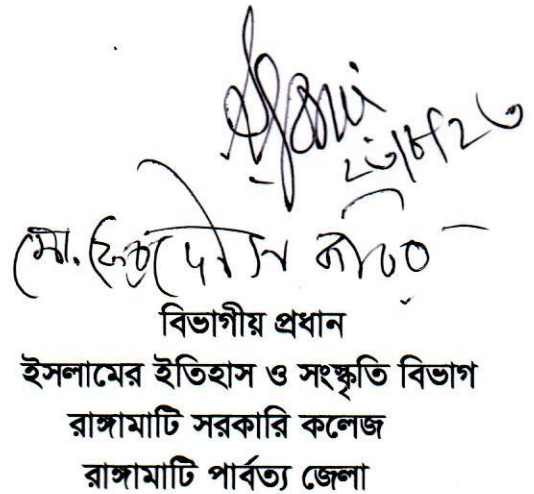 ২৩/৮/২৩
মো. ফেরদৌস কবির
বিভাগীয় প্রধান
ইসলামের ইতিহাস ও সংস্কৃতি বিভাগ
রাঙ্গামাটি সরকারি কলেজ
রাঙ্গামাটি পার্বত্য জেলা